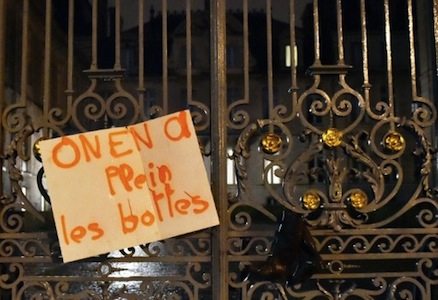 ON EN a
PLein
les bottes